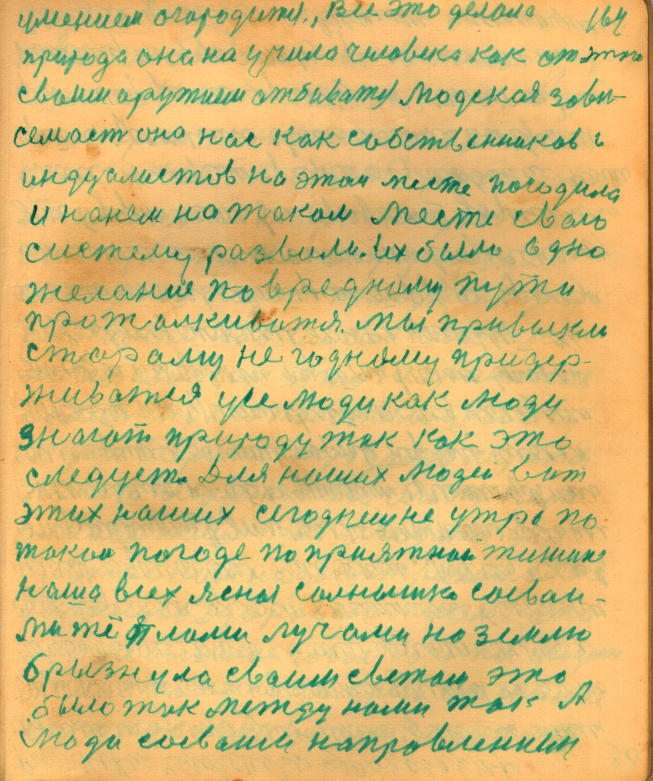 умением огородится., Все это делала 164
природа она научила человека как от этго
своим оружием отбиватся Людская зави-
семаст она нас как собственников и
индуалистов на этом месте породила
и на нем на таком месте свою
систему развили. Их было одно
желание по вредному пути
проталкиватся. Мы привыкли
старому негодному придер-
живатся усе люди как люди
знагат природу так как это
следует. Для наших людей вот
этих наших сегоднешне утро по
такой погоде по приятной тишине
наша всех ясноя солнышко соеваи-
ми тёплами лучами на землю
брызнула сваим светом это
было так между нами так А
люди соеваим направлением